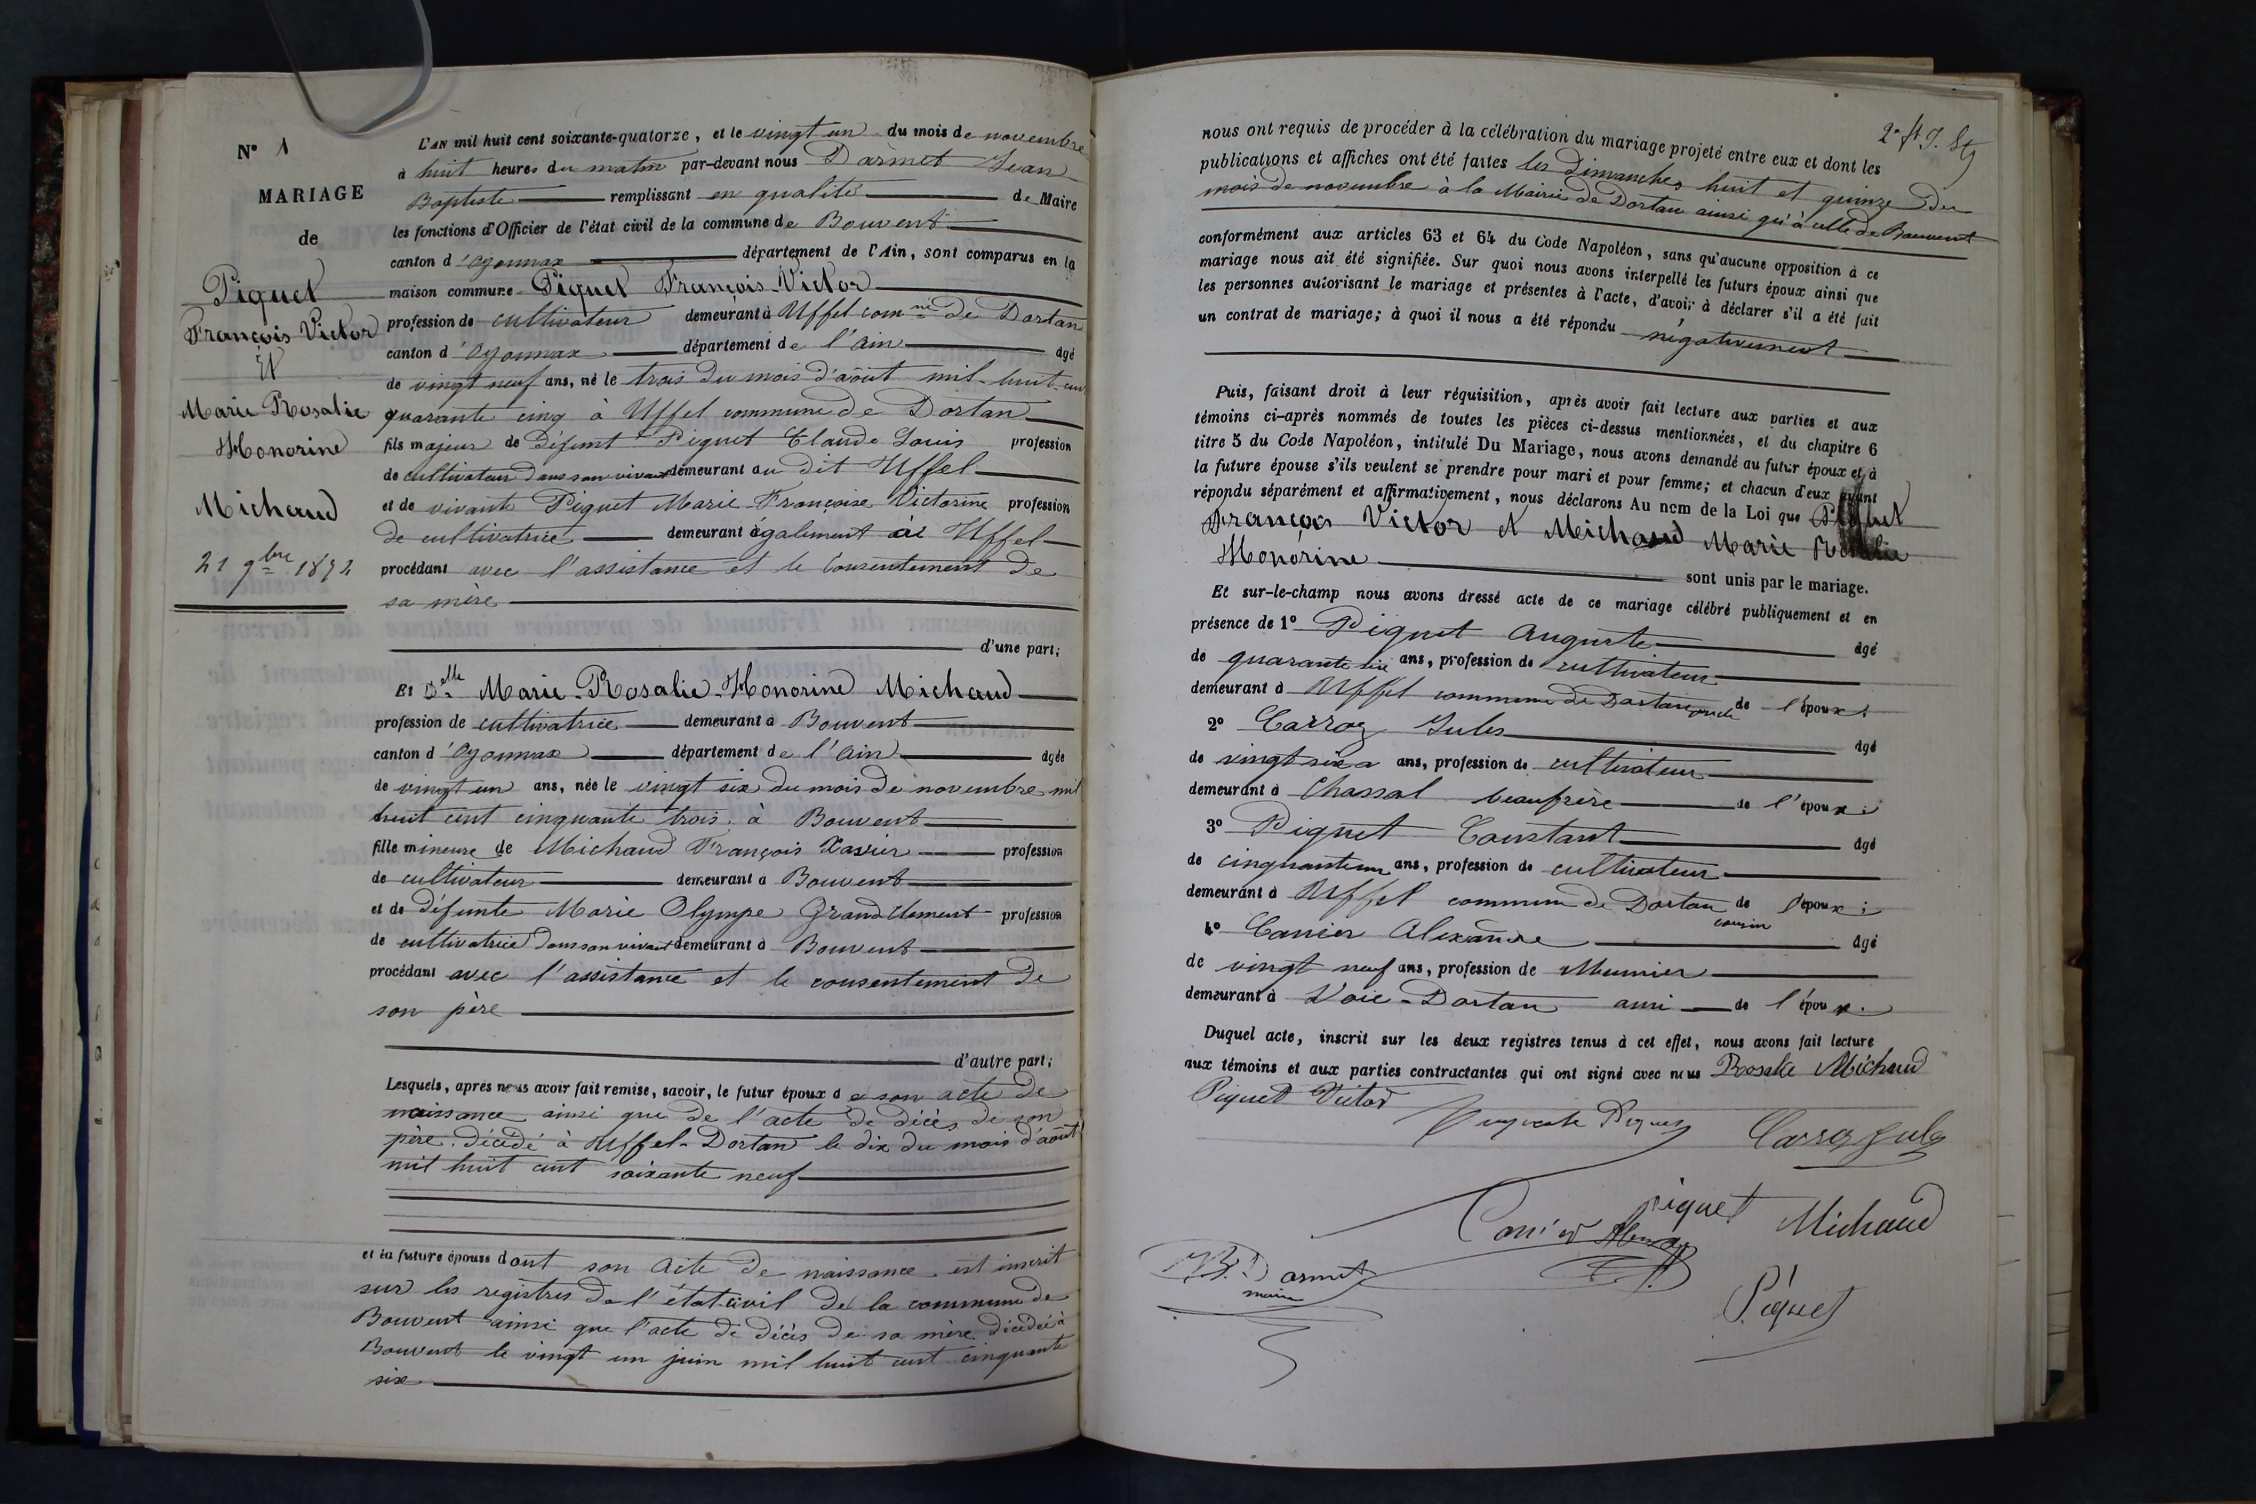 N° 1
MARIAGE
de
Piquet
François Victor
Et
Marie Rosalie
Honorine
Michaud
21 9bre 1872
L'AN mil huit cent soixante-quatorze, et le vingt un du mois de novembre
à huit heures du matin par-devant nous Darmet Jean
Baptiste remplissant en qualité de Maire
les fonctions d'Officier de l'état civil de la commune de Bouvent
canton d'Oyonnax département de l'Ain, sont comparus en la
maison commune Piquet François-Victor
profession de cultivateur demeurant à Uffel comne de Dortan
canton d'Oyonnax département de l'Ain âgé
de vingt neuf ans, né le trois du mois d'août mil-huit-cent
quarante cinq à Uffel commune de Dortan
fils majeur de défunt Piquet Claude Louis profession
de cultivateur dans son vivant demeurant au dit Uffel
et de vivante Piquet Marie Françoise Victorine profession
de cultivatrice demeurant également à Uffel
procédant avec l'assistance et le consentement de
sa mère
d'une part;
Et Delle Marie-Rosalie-Honorine Michaud
profession de cultivatrice demeurant à Bouvent
canton d'Oyonnax département de l'Ain âgée
de vingt un ans, née le vingt six du mois de novembre mil
huit cent cinquante trois à Bouvent
fille mineure de Michaud François Xavier profession
de cultivateur demeurant à Bouvent
et de défunte Marie Olympe Grand Clement profession
de cultivatrice dans son vivant demeurant à Bouvent
procédant avec l'assistance et le consentement de
son père
d'autre part;
Lesquels, après nous avoir fait remise, savoir, le futur époux de son acte de
naissance ainsi que de l'acte de décès de son
père décédé à Uffel-Dortan le dix du mois d'août
mil huit cent soixante neuf
et la future épouse dont son acte de naissance est inscrit
sur les registres de l'état civil de la commune de
Bouvent ainsi que l'acte de décès de sa mère décédée à
Bouvent le vingt un juin mil huit cent cinquante
six
nous ont requis de procéder à la célébration du mariage projeté entre eux et dont les
publications et affiches ont été faites les Dimanches huit et quinze du
mois de novembre à la Mairie de Dortan ainsi qu'à celle de Bouvent
conformément aux articles 63 et 64 du Code Napoléon, sans qu'aucune opposition à ce
mariage nous ait été signifiée. Sur quoi nous avons interpellé les futurs époux ainsi que
les personnes autorisant le mariage et présentes à l'acte, d'avoir à déclarer s'il a été fait
un contrat de mariage; à quoi il nous a été répondu négativement
Puis, faisant droit à leur réquisition, après avoir fait lecture aux parties et aux
témoins ci-après nommés de toutes les pièces ci-dessus mentionnées, et du chapitre 6
titre 5 du Code Napoléon, intitulé Du Mariage, nous avons demandé au futur époux et à
la future épouse s'ils veulent se prendre pour mari et pour femme; et chacun d'eux ayant
répondu séparément et affirmativement, nous déclarons Au nom de la Loi que Piquet
François Victor et Michaud Marie Rosalie
Honorine sont unis par le mariage.
Et sur-le-champ nous avons dressé acte de ce mariage célébré publiquement et en
présence de 1° Piquet Auguste âgé
de quarante six ans, profession de cultivateur
demeurant à Uffel commune de Dortan oncle de l'époux;
2° Carroz Jules âgé
de vingt six ans, profession de cultivateur
demeurant à Chassal beaufrère de l'époux;
3° Piquet Constant âgé
de cinquante un ans, profession de cultivateur
demeurant à Uffel commune de Dortan cousin de l'époux;
4° Canier Alexandre âgé
de vingt neuf ans, profession de Meunier
demeurant à Voie-Dortan ami de l'époux.
Duquel acte, inscrit sur les deux registres tenus à cet effet, nous avons fait lecture
aux témoins et aux parties contractantes qui ont signé avec nous Rosalie Michaud
Piquet Victor
Auguste Piquet Carroz Jules
Piquet Michaud
Canier Alexandre
JB. Darmet
maire
Piquet